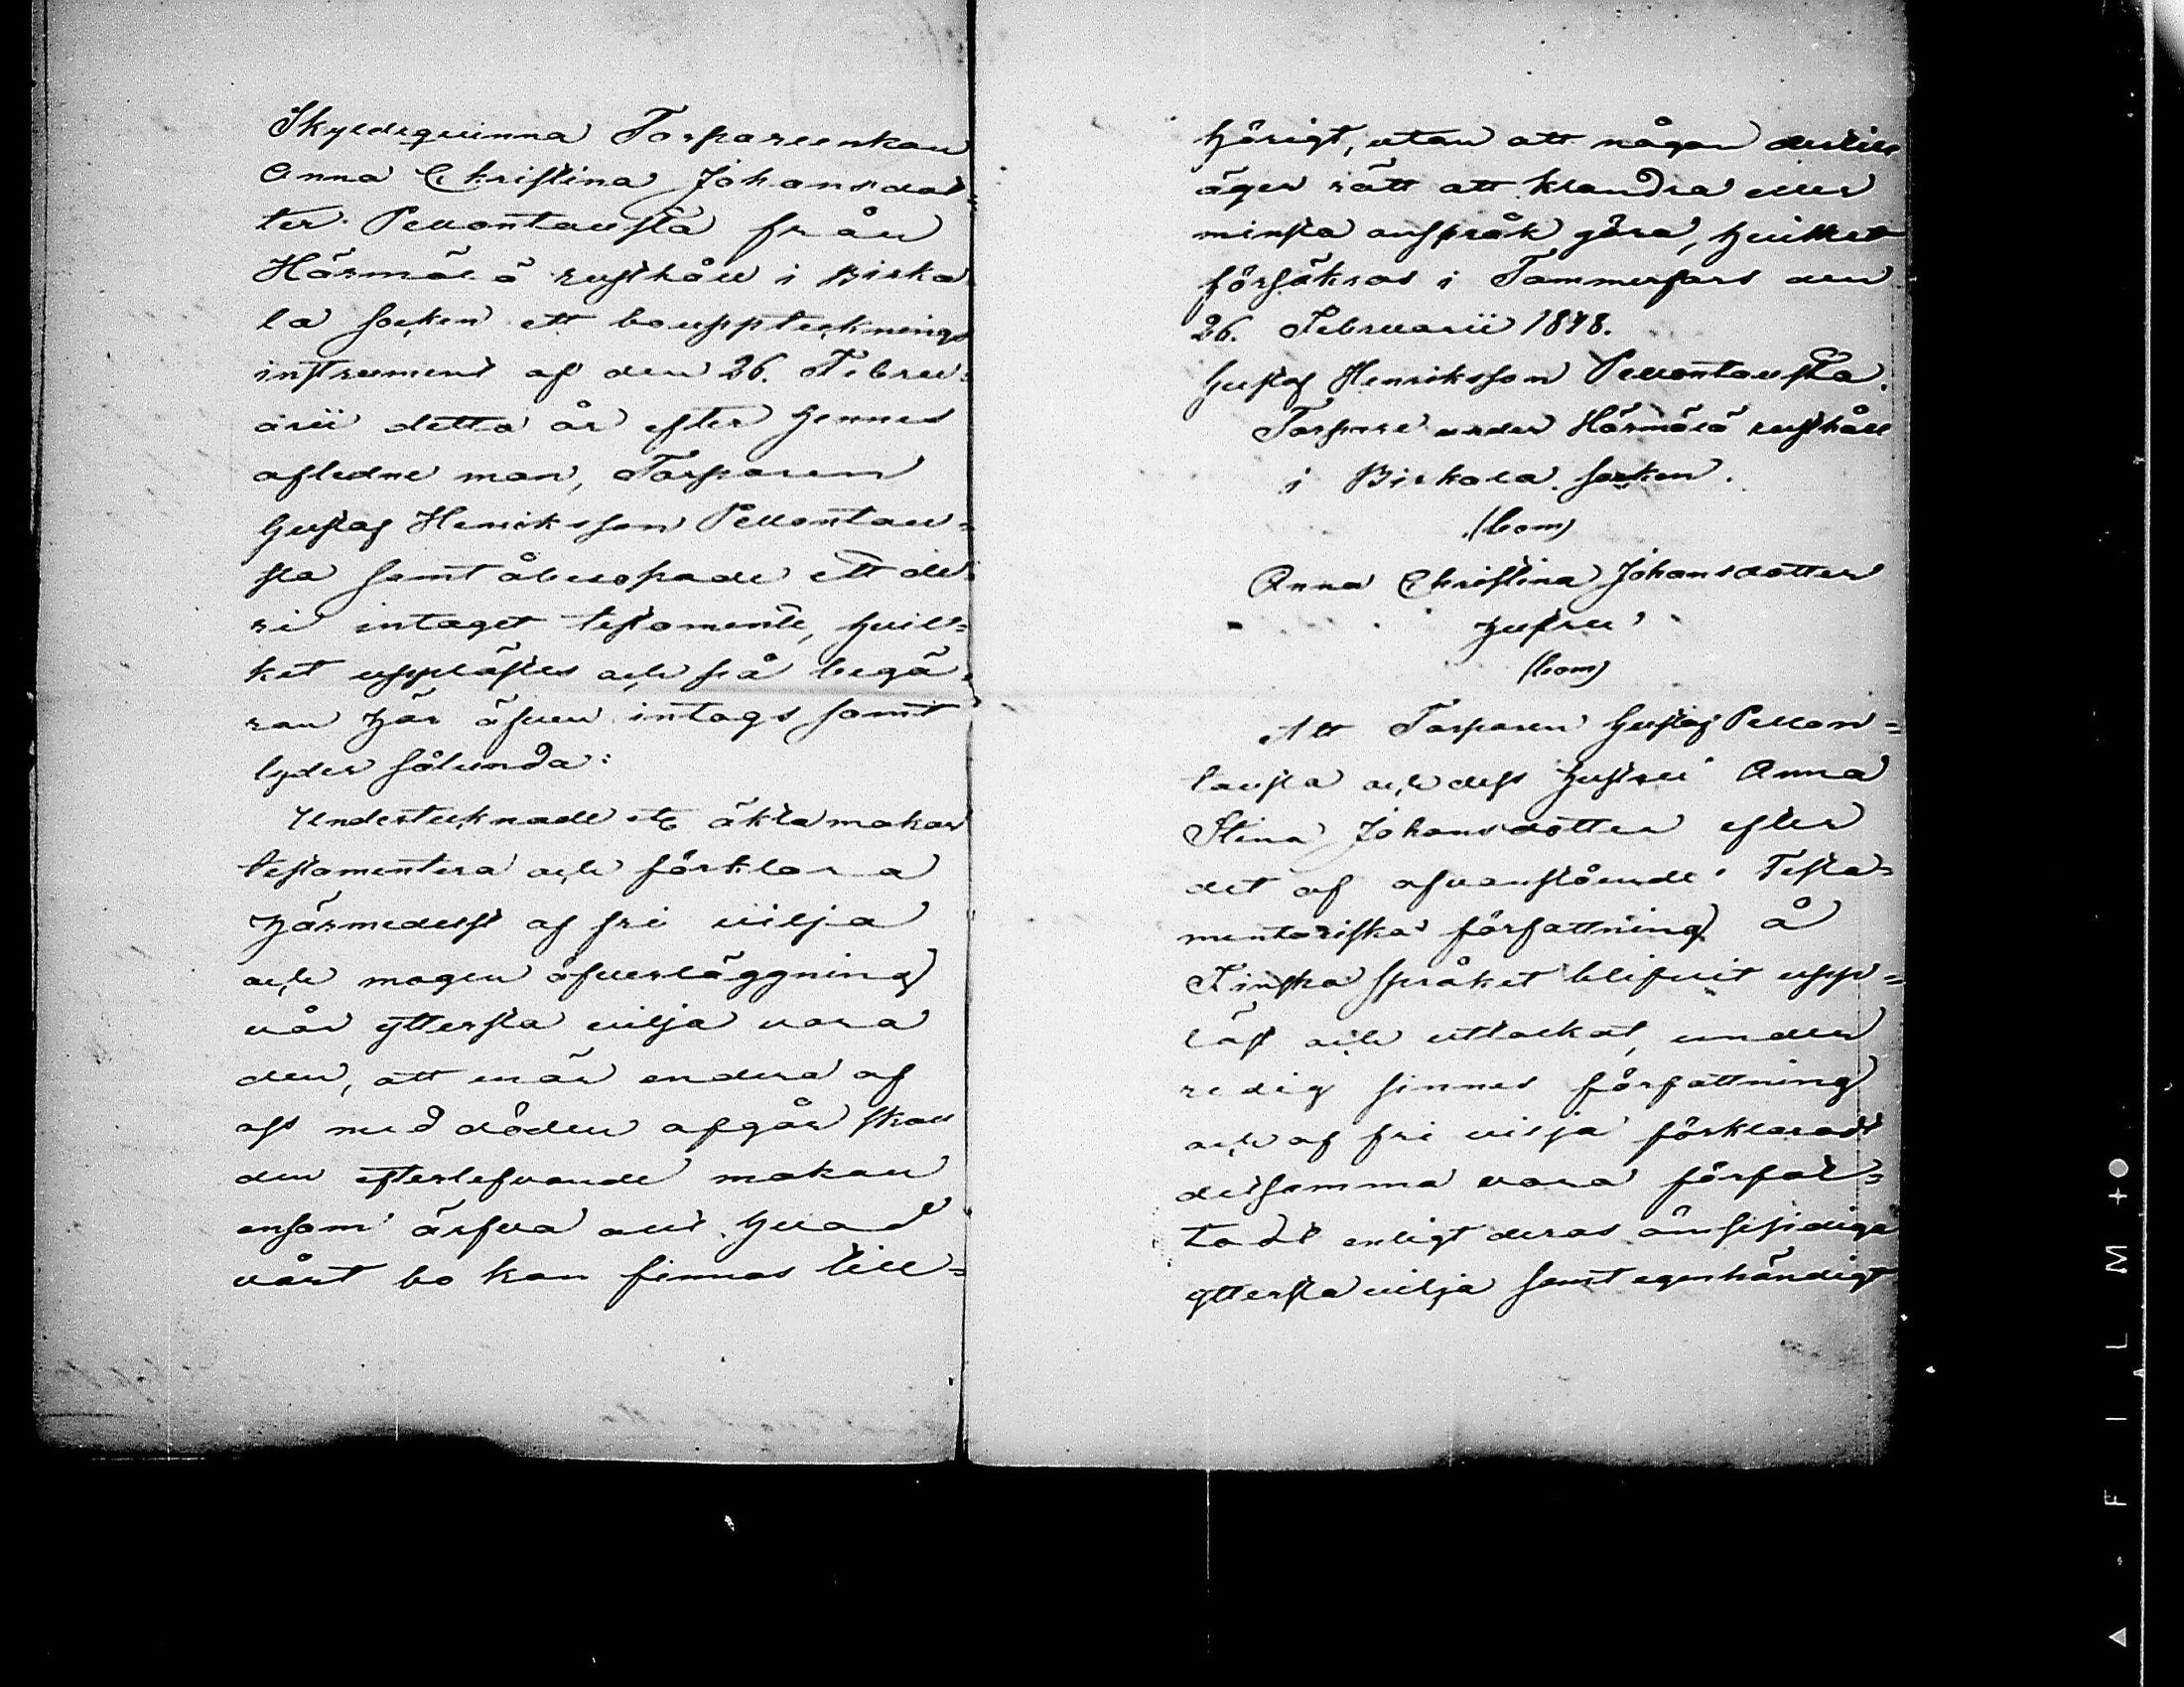 Skyldeqvinna Torpareenkan
Anna Christina Johansdot=
ter Pellontausta från
Härmälä rusthåll i Birka
la socken ett bouppteknings
instrument af den 26. Febru=
arii detta år efter hennes
aflidne man, Torparen
Gustaf Henriksson Pellontau=
sta samt åberopade ett de
ri intaget testamente, hvil=
ket upplästes och på begä=
ran här äfven intogs samt
lyder sålunda:
Undertecknade äkta makar
testamentera och förklara
härmedelst af fri vilja
och mogen öfverläggning
vår yttersta vilja vara
den, att när endera af
oss med döden afgår skall
den efterlefvande makan
ensam ärfva allt hvad
vårt bo kan finnas till=
hörigt, utan att någon dertill
äger rätt att klandra eller
minsta anspråk göra, hvilket
försäkras i Tammerfors den
26. Februarii 1848.
Gustaf Henriksson Pellontausta.
Torpare under Härmälä rusthåll
i Birkala socken.
(bom)
Anna Christina Johansdotter
hustru
(bom)
Att Torparen Gustaf Pellon=
tausta och dess hustru Anna
Stina Johansdotter efter
det af ofvanstående Testa=
mentariska författning å
Finska språket blifvit upp=
läst och uttolkat, under
redig sinnes författning
och af fri vilja förklaradt
detsamma vara förfat=
tadt enligt deras ömsesidiga
yttersta vilja samt egenhändigt